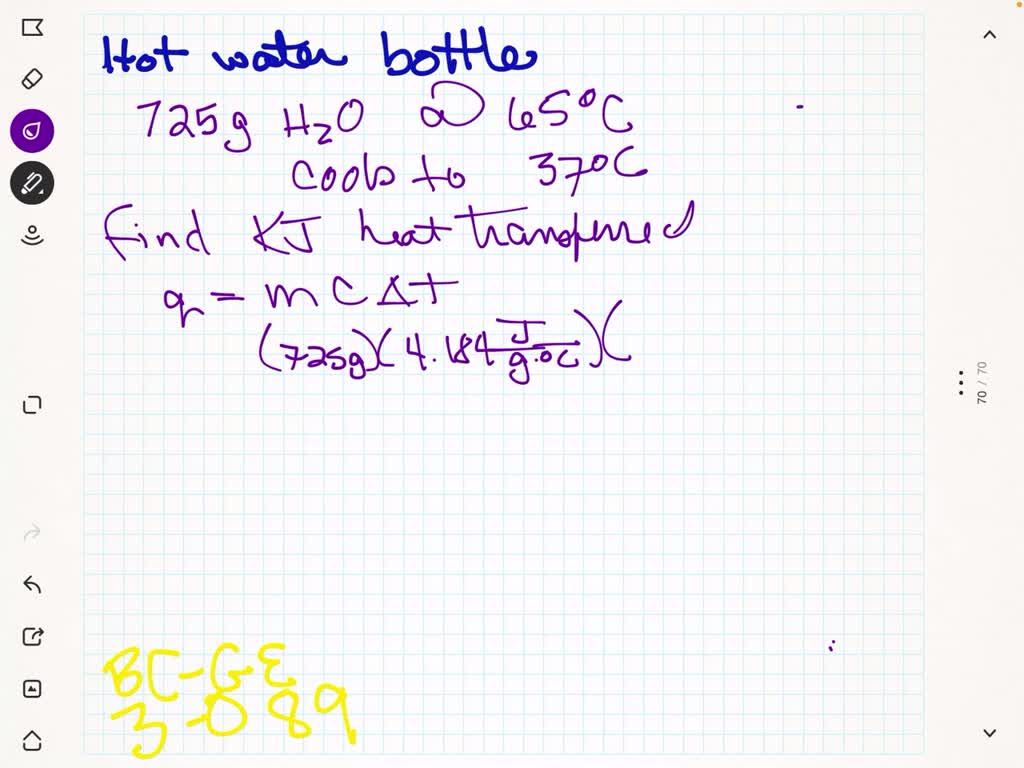 Hot water bottle
725g H₂O @ 65°C
cools to 37°C
find KJ heat transferred
q = m C Δt
(725g)(4.184 J/g·°C)(
70 / 70
BC-GE
3-089